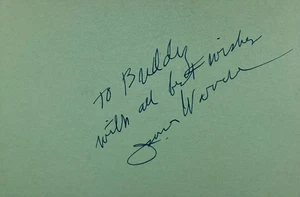 To Buddy
with all best wishes
Warren